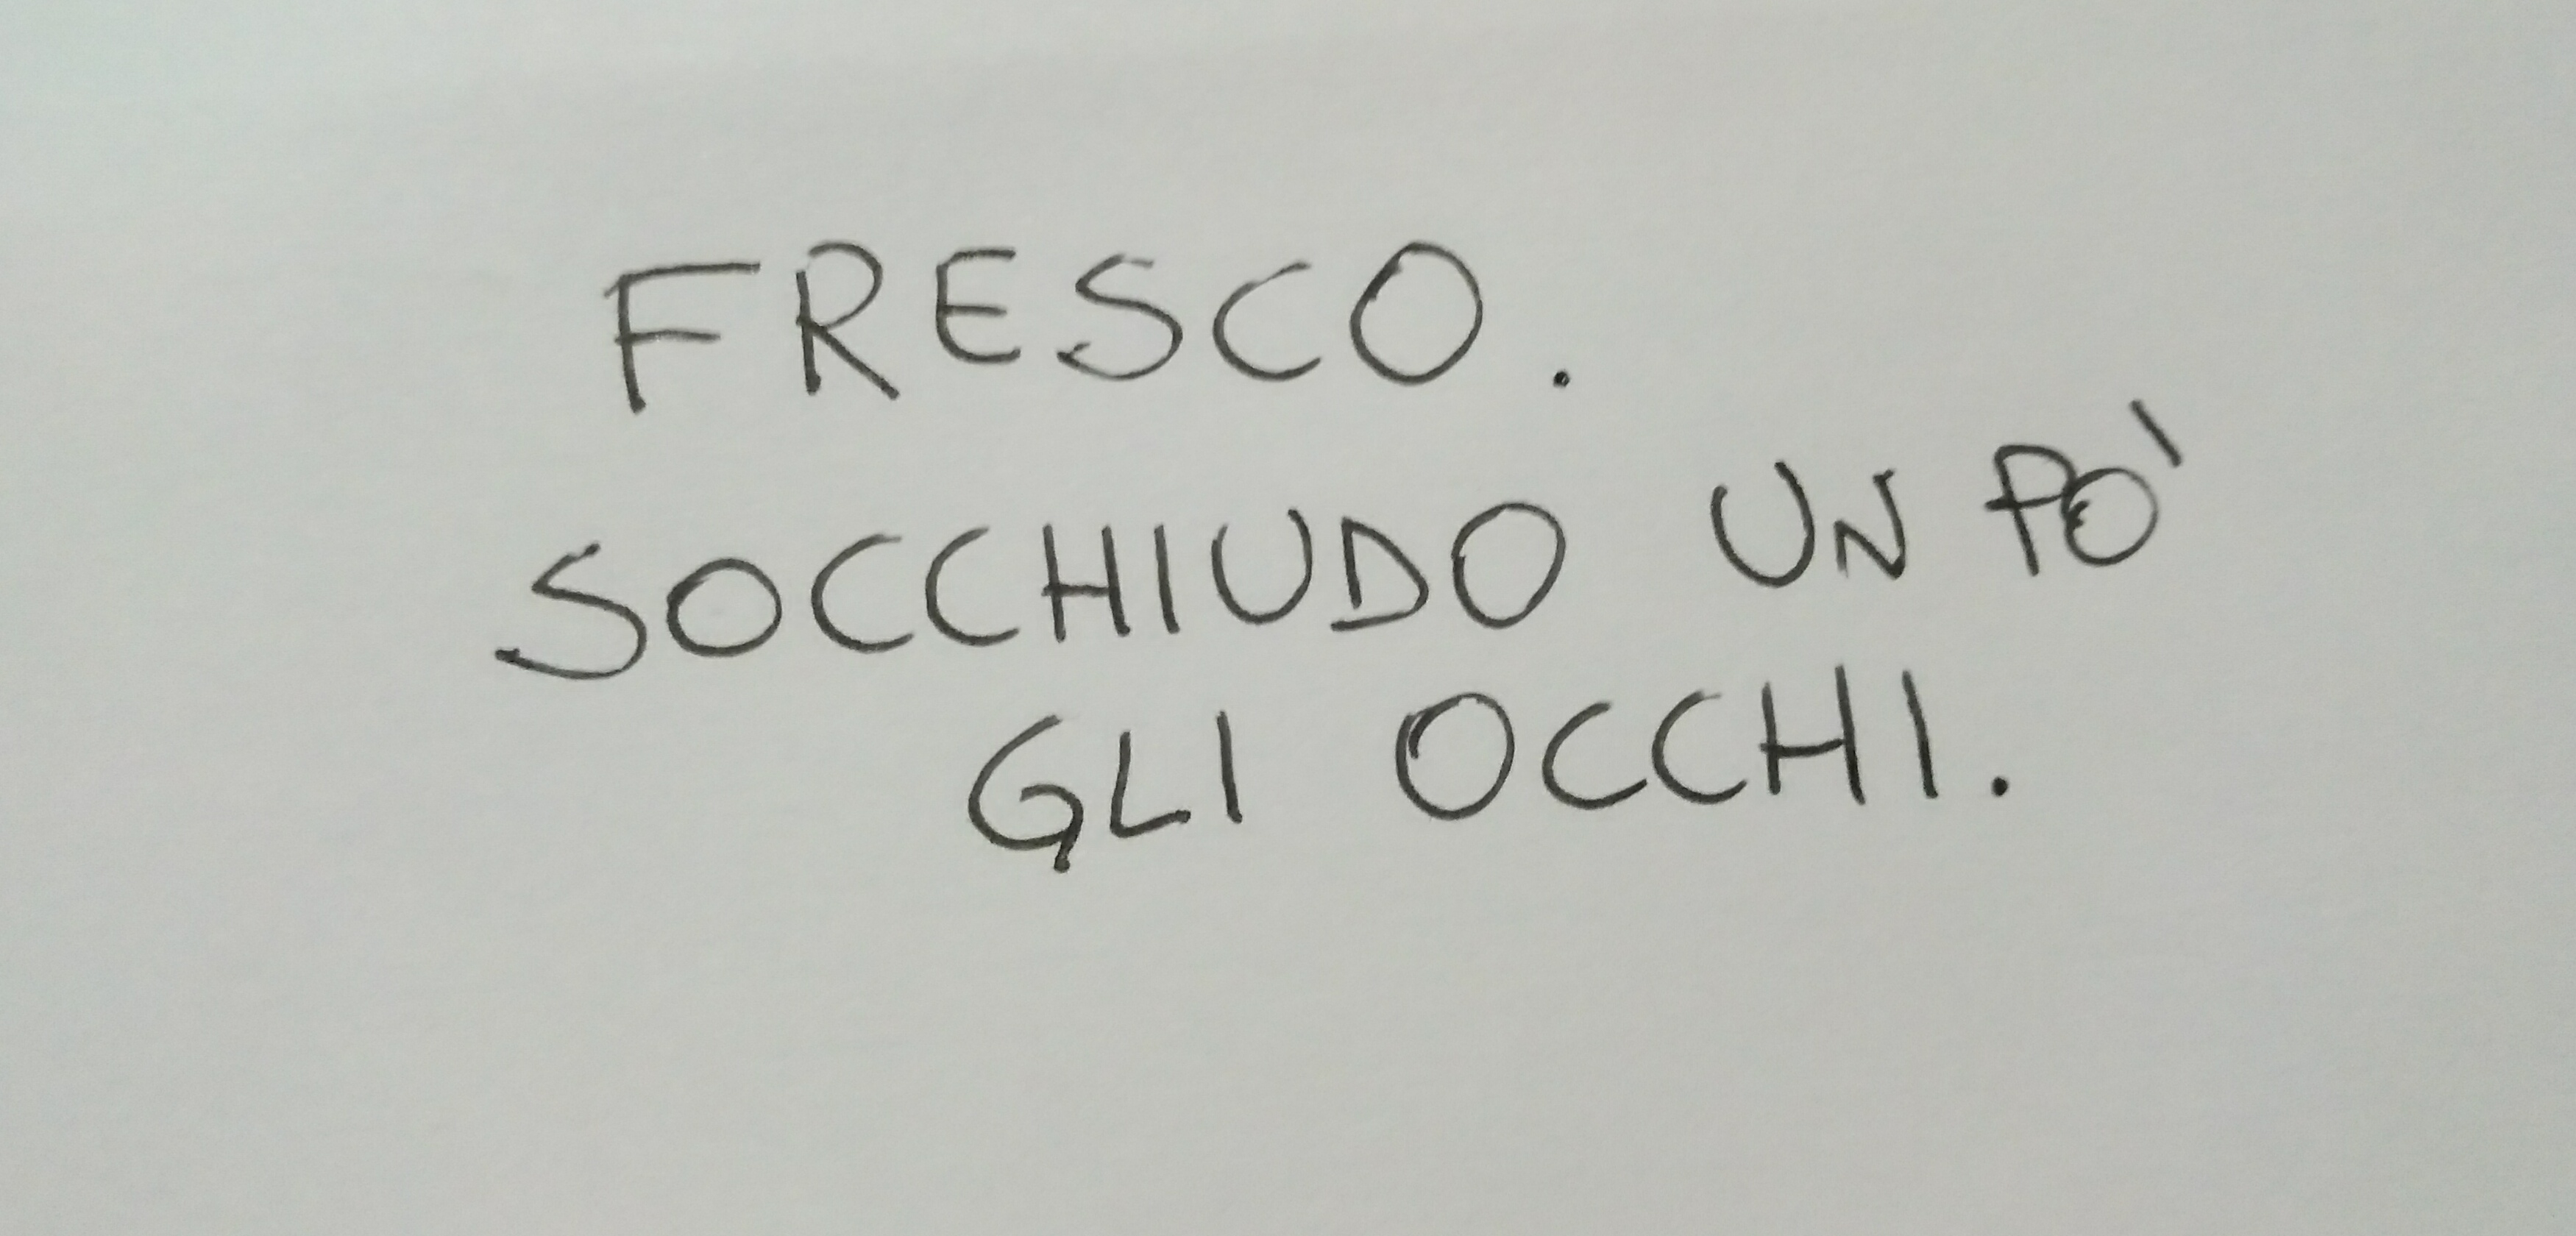 FRESCO.
SOCCHIUDO UN PO'
GLI OCCHI.